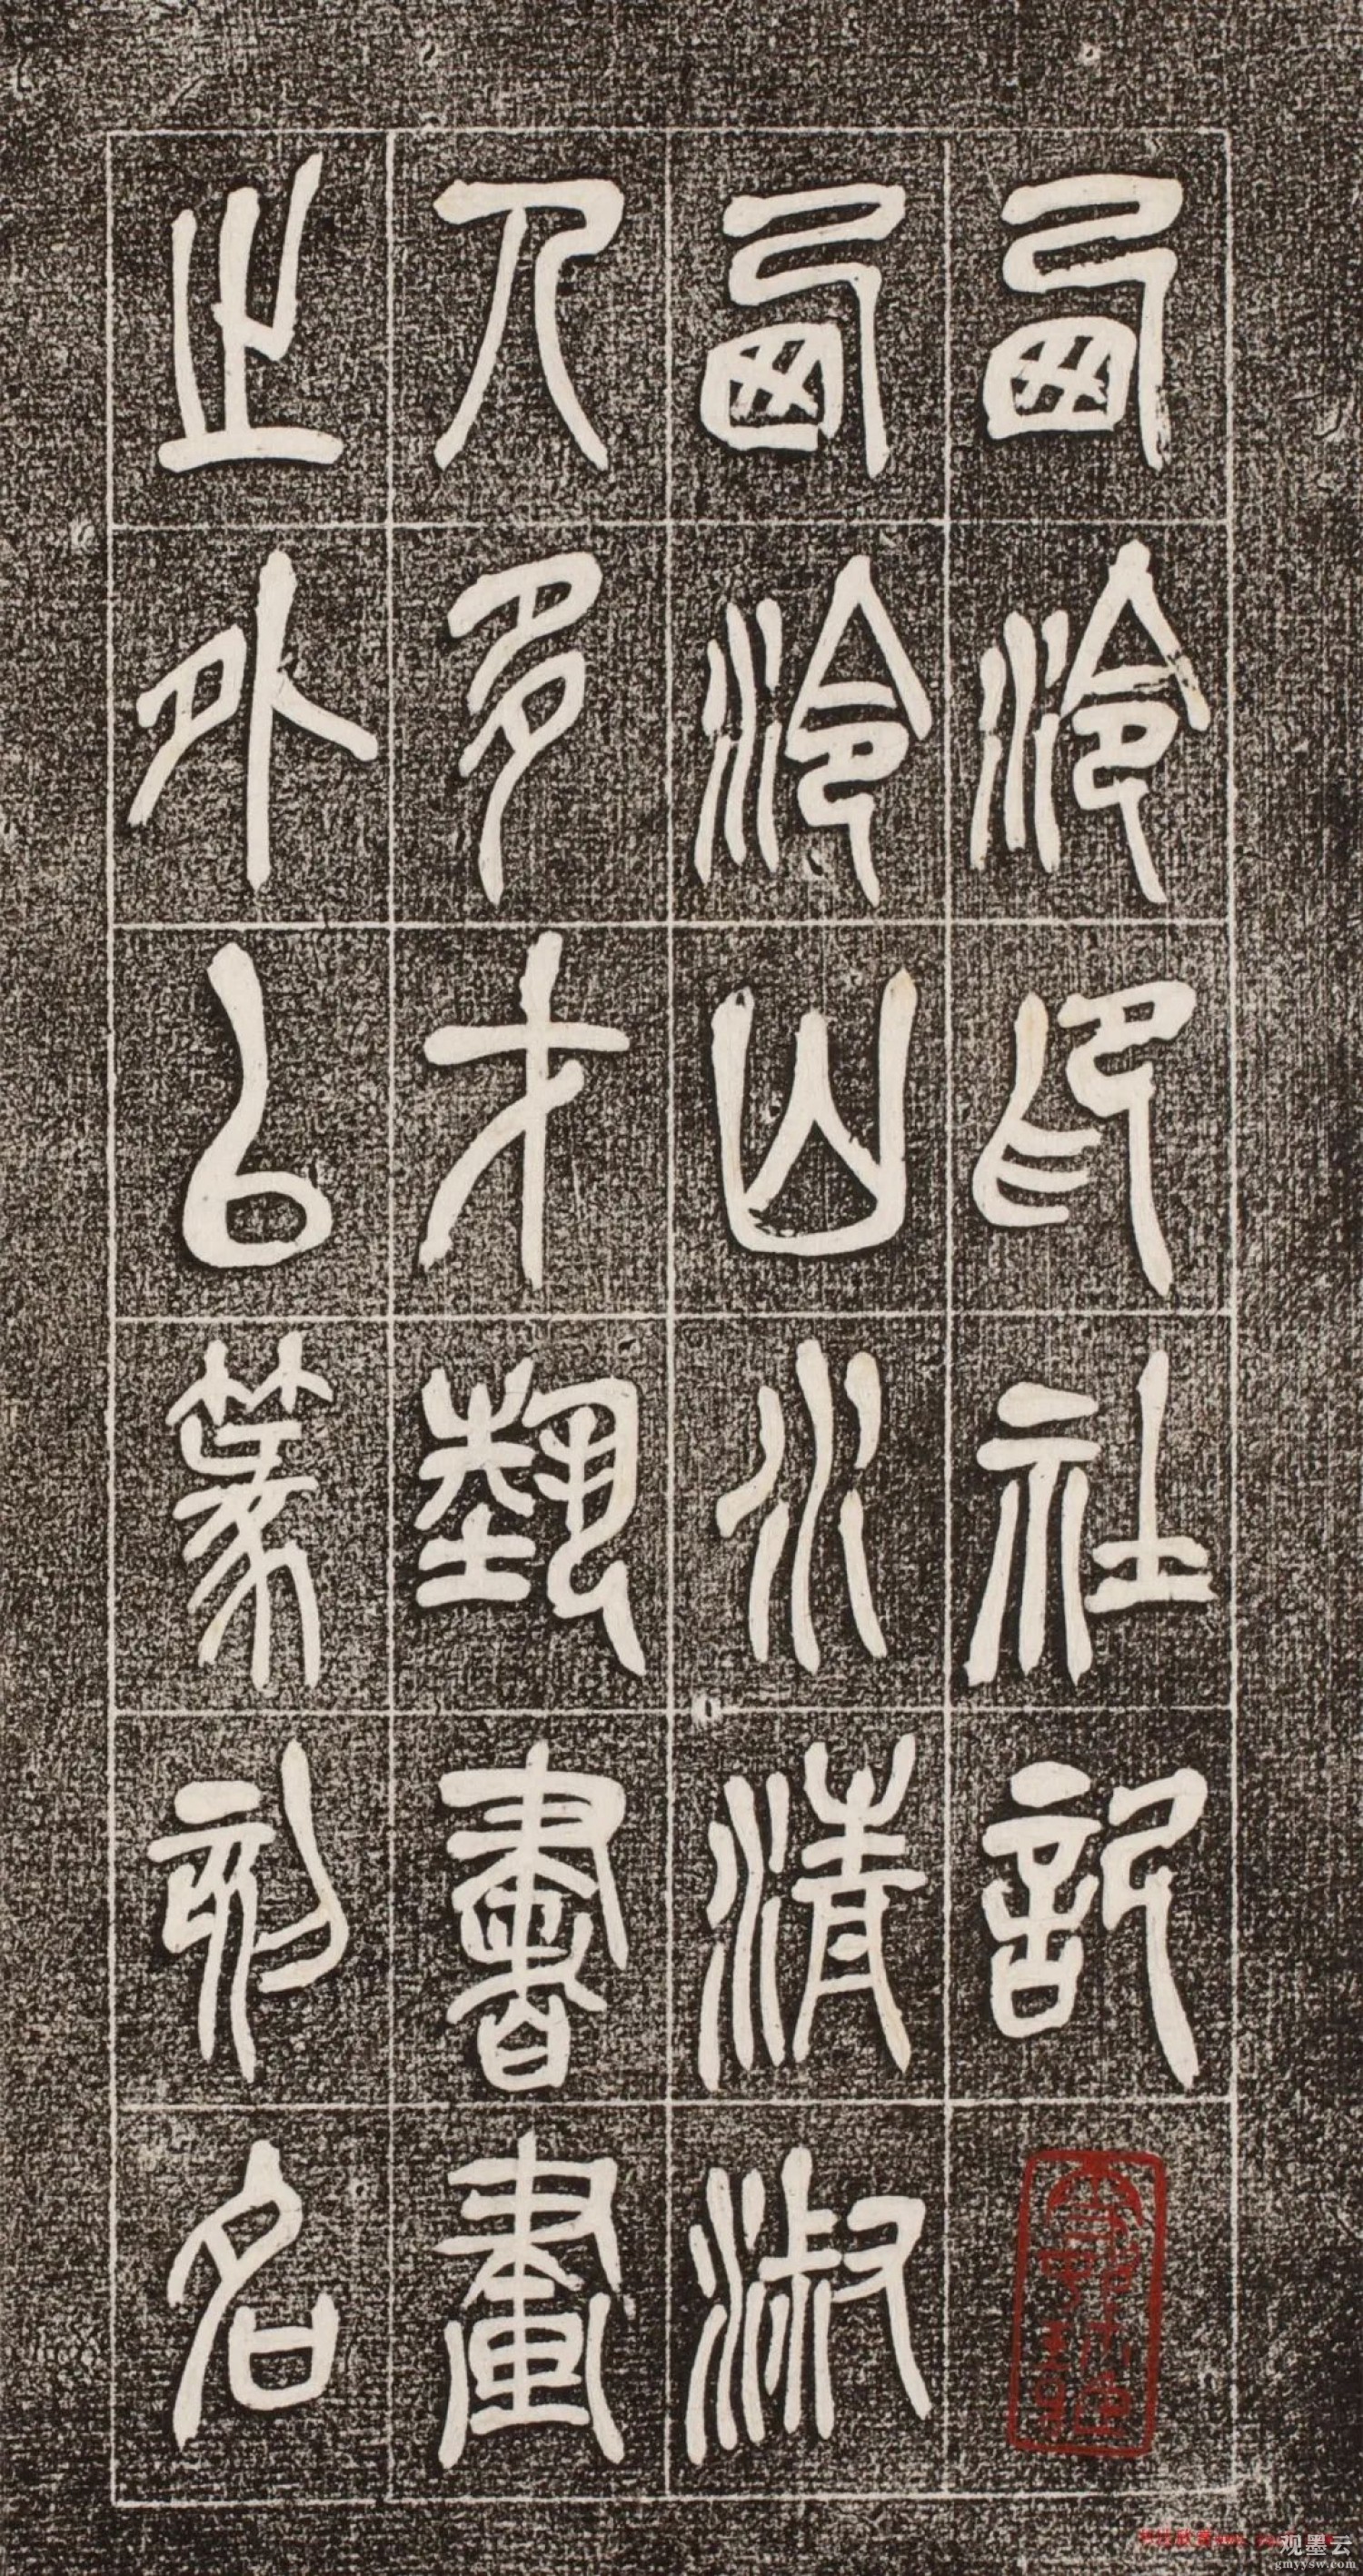 西泠印社記
西泠山水清淑
人多才藝書畫
之外以篆刻名
观墨云
gmyysw.com